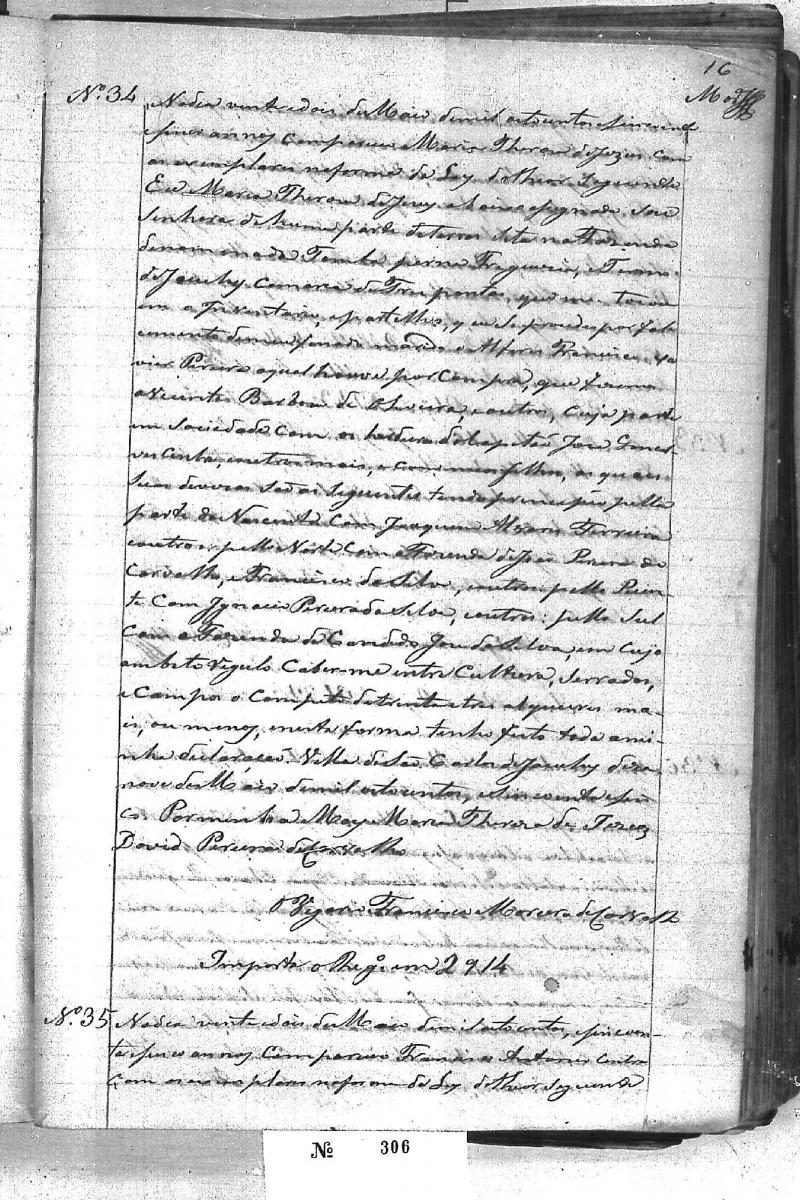 16
Nº 34
No dia vinte e dois de Maio de mil oito centos e sincoenta
e sinco annos compareceu Maria Theresa de Jezus com
os exemplares na forma da Ley do theor seguinte
Eu Maria Theresa de Jezus abaixo asignada sou
Senhora de huma parte de terras sita na Fazenda
denominada Freguezia, e Termo
de Jacuhy Comarca de Tres pontas, que me tocou
em o Inventario, e partilhas, q se
cimento de marido o Alferes Francisco Xa
vier Pereira a qual houve por Compra, que fez
a Vicente Barboza de Oliveira, e outros, cuja parte
em Sociedade Com os herdeiros do Capitão Joze Gonsal
ves Cintra, e outros mais, e com meus filhos, as quaes
suas devizas são as seguintes tendo principio pella
parte do Nascente Com Joaquim Alvares Ferreira
e outros: pello Norte Com a Fazenda de Joze Pereira de
Carvalho, e Francisco da Silva, e outros: pello Puen-
te Com Ignacio Pereira da Silva, e outros: pello Sul
Com a Fazenda de Candido Joze da Silva, em Cujo
ambito Caber-me entre Cultura, Serrados,
e Campos o Computo de trinta e tres alqueires ma-
is, ou menos, e nesta forma tenho feito toda a mi-
nha declaração. Villa de São Carlos de Jacuhy deza-
nove de Maio de mil oito centos, e sincoenta e sin
co. Por minha May Maria Theresa de Jezus
David Pereira de Carvalho
O Vigario Francisco Moreira de Carvalho
Importa o Regº em 2914
Nº 35
No dia vinte e dois de Maio de mil oito centos, e sincoen-
ta e sinco annos Compareceu Francisco Antonio Cintra
Com os exemplares na forma da Ley do theor seguinte
Nº 306